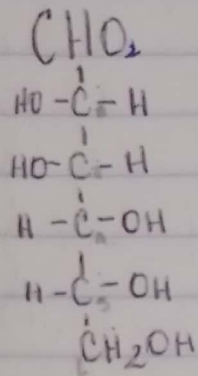 CHO₂
HO-C-H
HO-C-H
H-C-OH
H-C-OH
CH₂OH